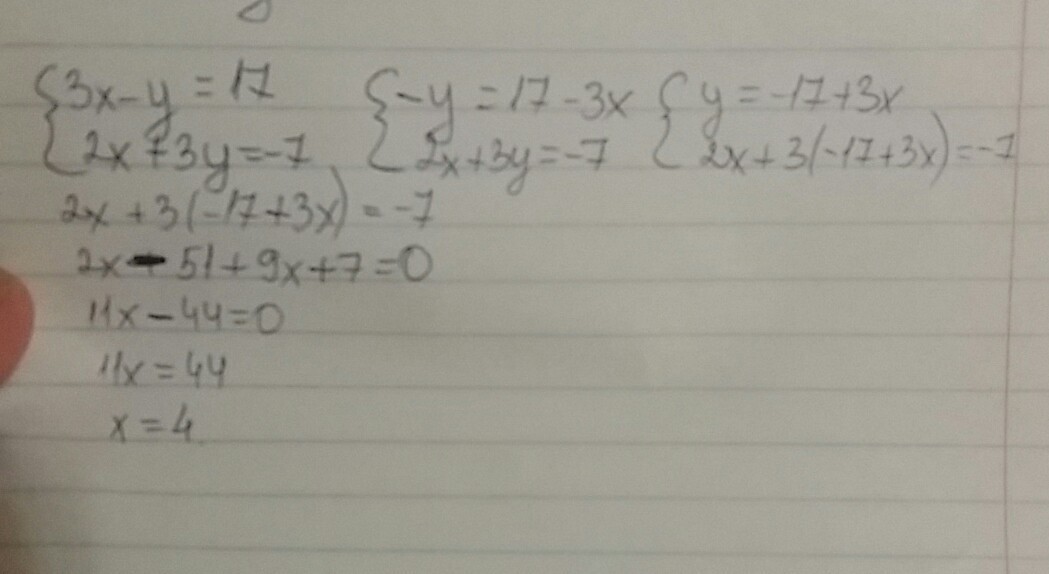 {3x-y=17 {-y=17-3x {y=-17+3x
{2x+3y=-7 {2x+3y=-7 {2x+3(-17+3x)=-7
2x+3(-17+3x)=-7
2x-51+9x+7=0
11x-44=0
11x=44
x=4